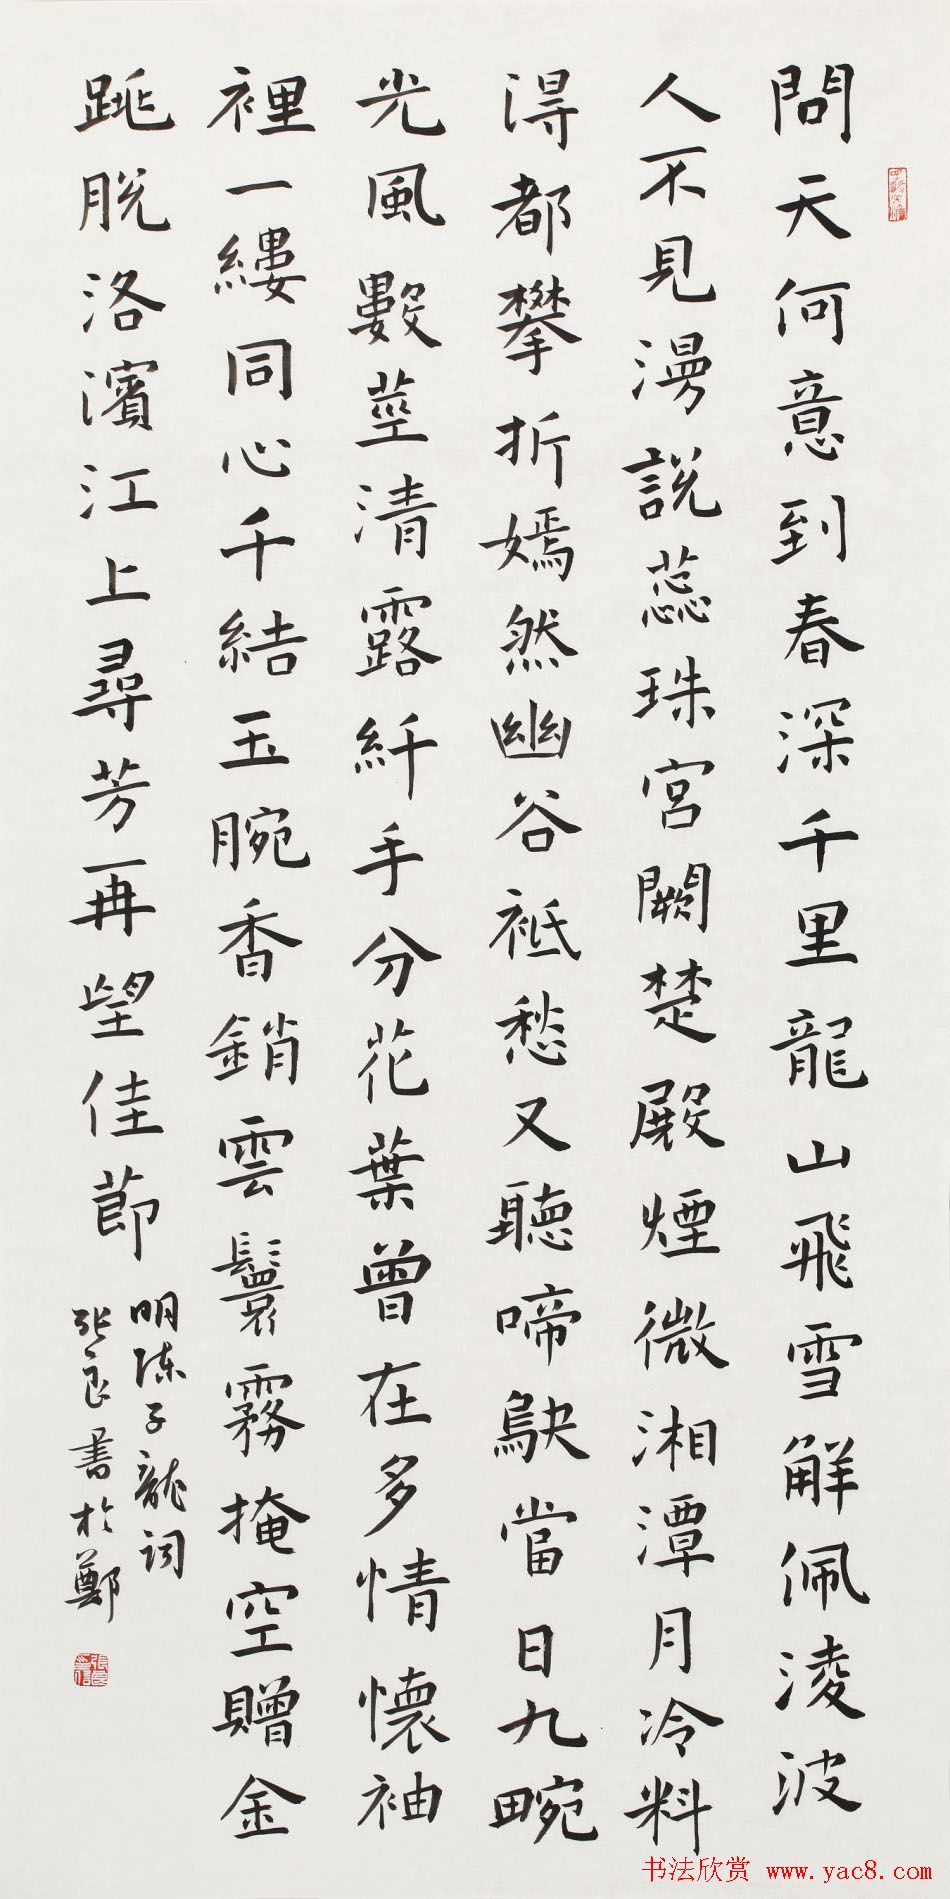 問天何意到春深千里龍山飛雪解佩淩波
人不見漫說蕊珠宮闕楚殿煙微湘潭月冷料
得都攀折嫣然幽谷祗愁又聽啼鴃當日九畹
光風數莖清露纤手分花葉曾在多情懷袖
裡一縷同心千結玉腕香銷雲鬟霧掩空贈金
跳脫洛濱江上尋芳再望佳節
明陳子龍詞
張良書於鄭
书法欣赏 www.yac8.com